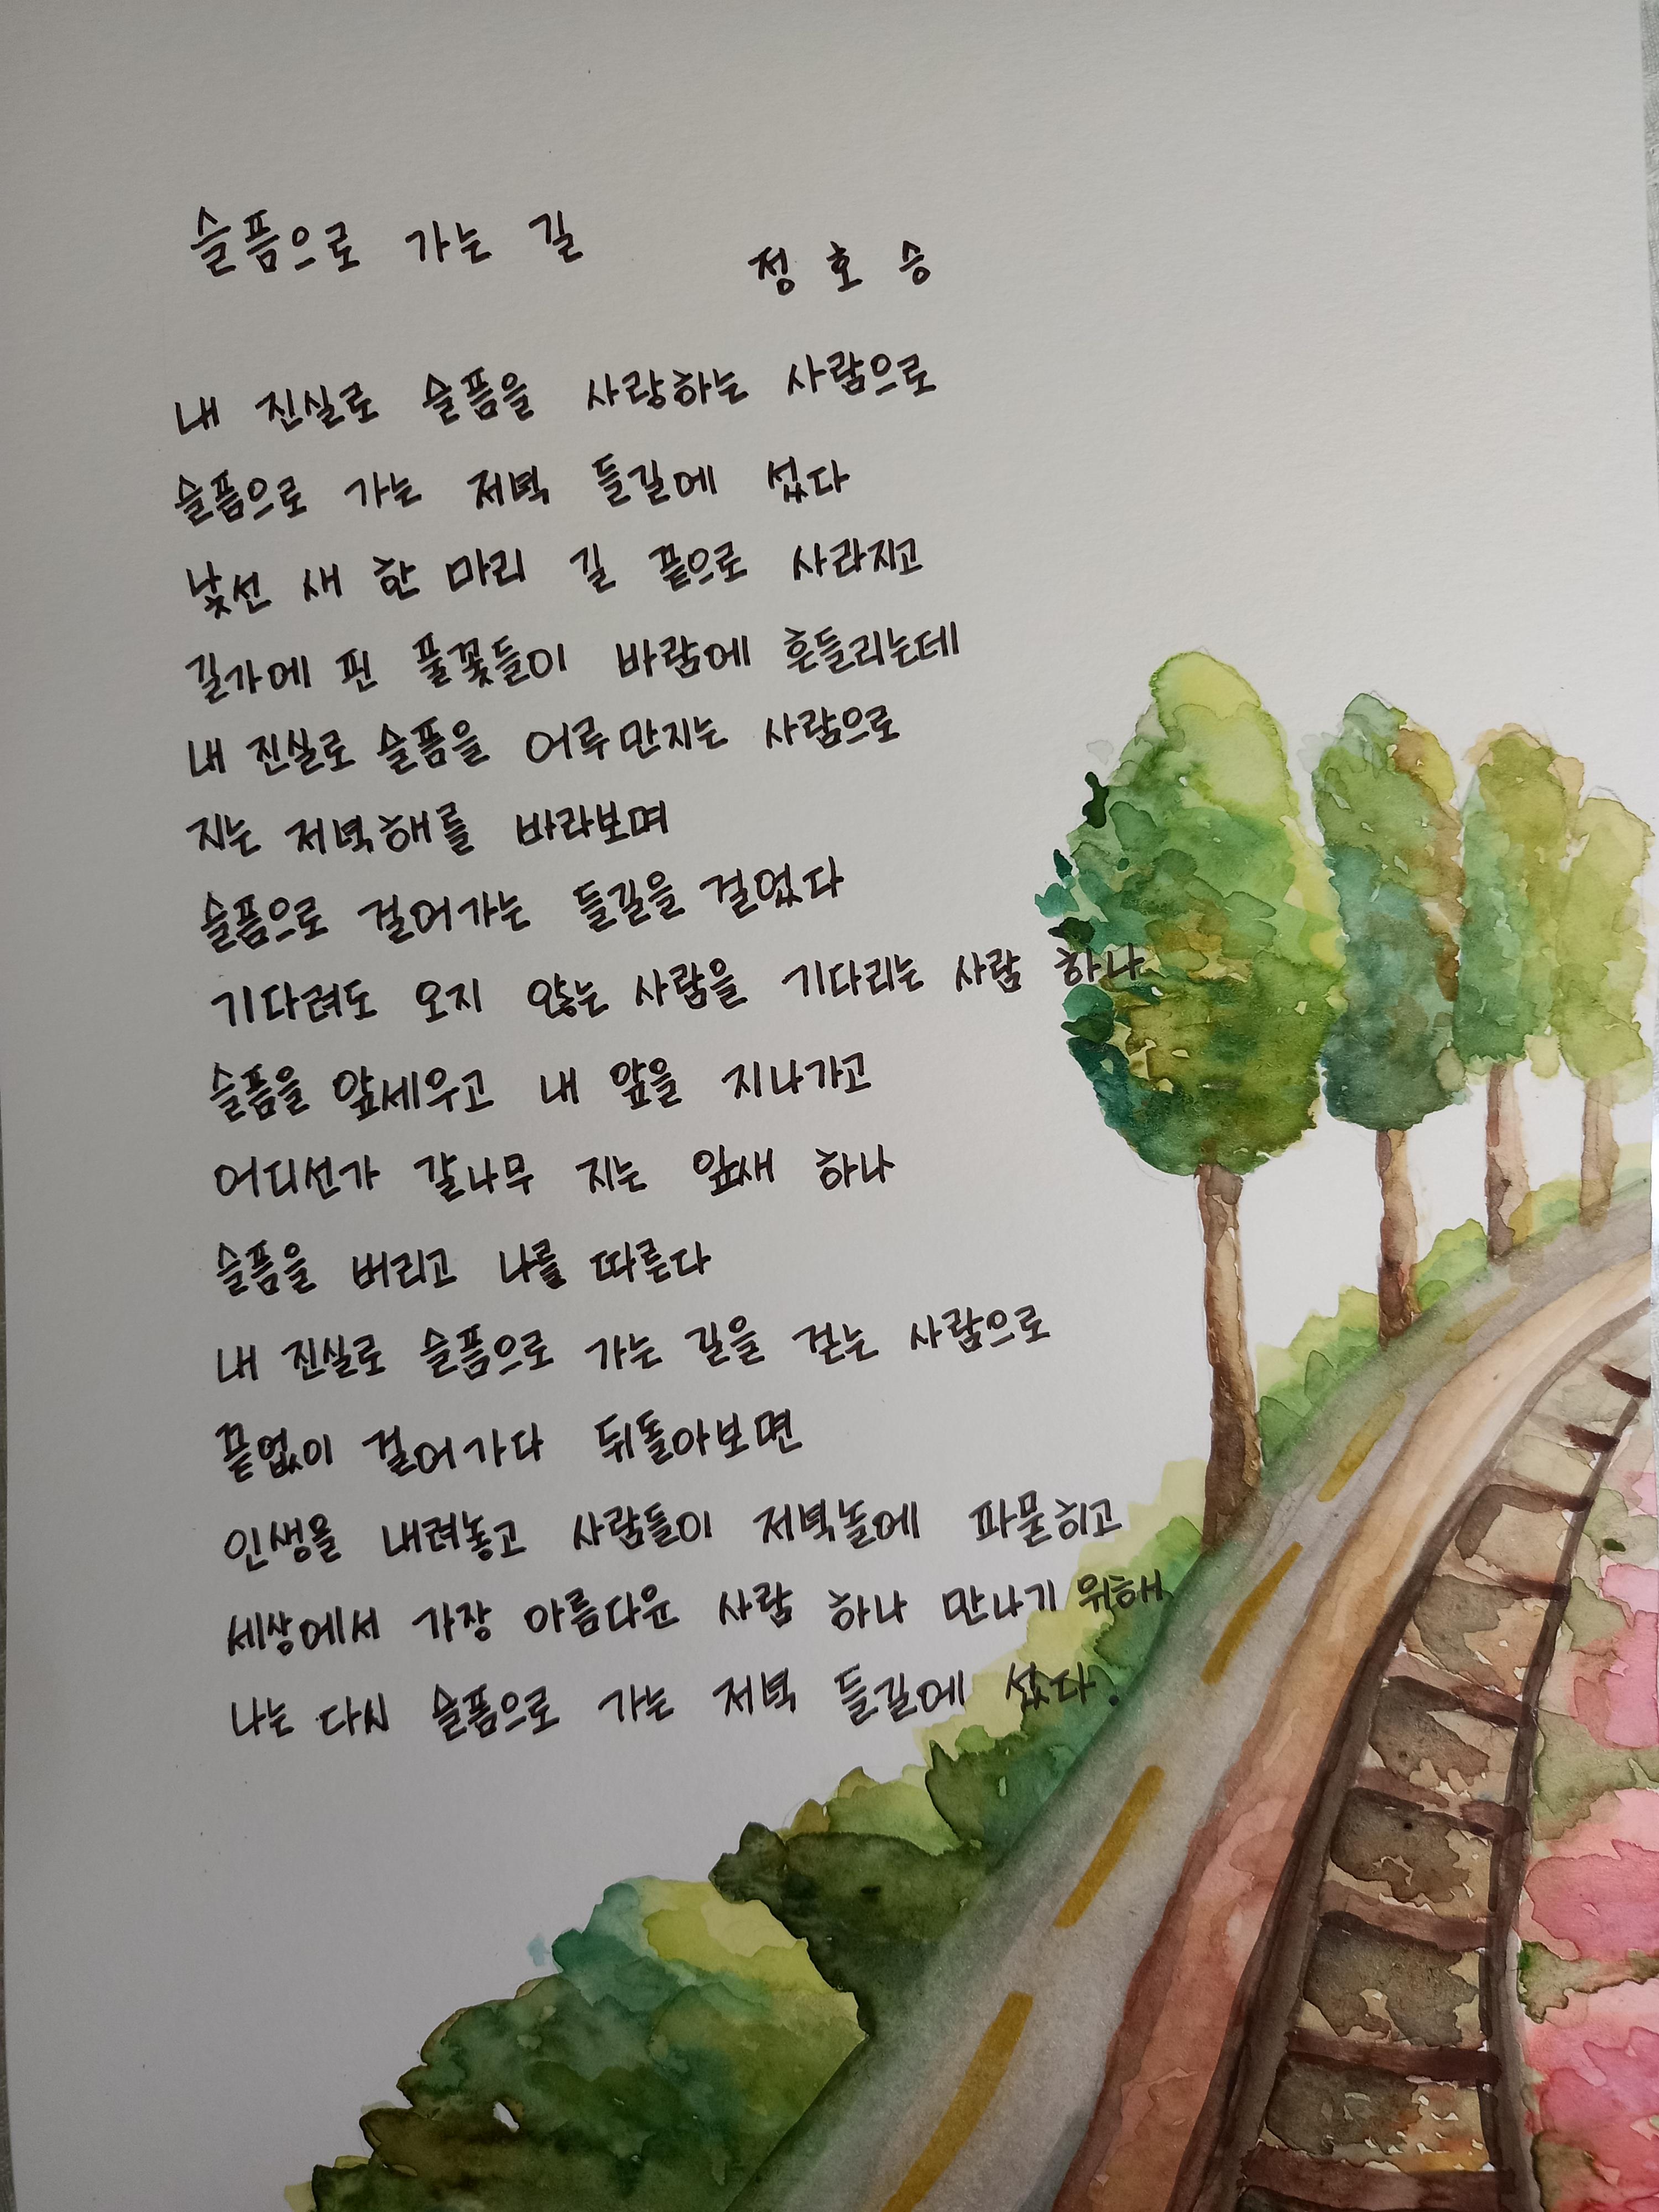 슬픔으로 가는 길
정 호 승
내 진실로 슬픔을 사랑하는 사람으로
슬픔으로 가는 저녁 들길에 섰다
낯선 새 한 마리 길 끝으로 사라지고
길가에 핀 풀꽃들이 바람에 흔들리는데
내 진실로 슬픔을 어루만지는 사람으로
지는 저녁해를 바라보며
슬픔으로 걸어가는 들길을 걸었다
기다려도 오지 않는 사람을 기다리는 사람 하나
슬픔을 앞세우고 내 앞을 지나가고
어디선가 갈나무 지는 잎새 하나
슬픔을 버리고 나를 따른다
내 진실로 슬픔으로 가는 길을 걷는 사람으로
끝없이 걸어가다 뒤돌아보면
인생을 내려놓고 사람들이 저녁놀에 파묻히고
세상에서 가장 아름다운 사람 하나 만나기 위해
나는 다시 슬픔으로 가는 저녁 들길에 섰다.